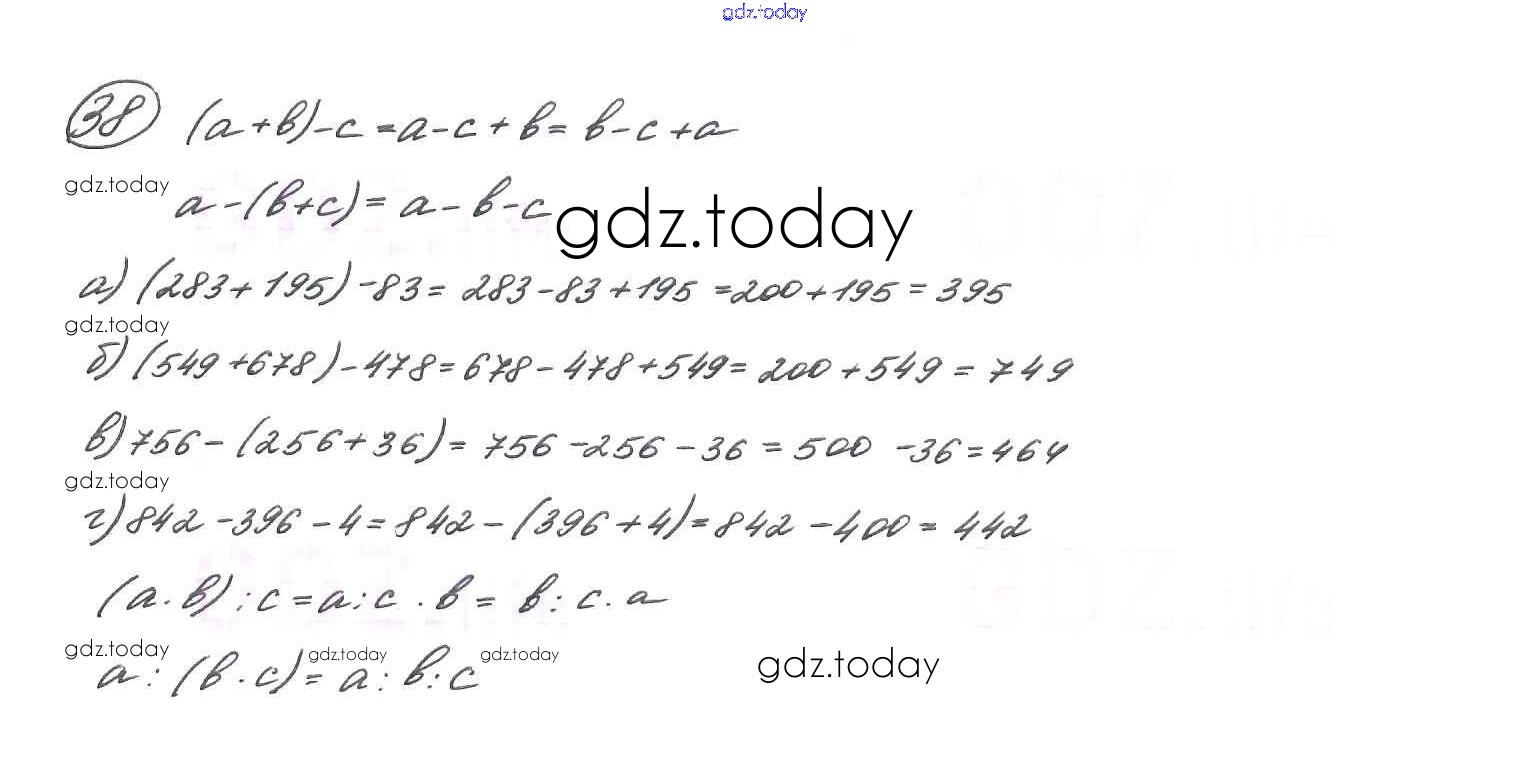 gdz.today
38 (a+b)-c=a-c+b=b-c+a
gdz.today
a-(b+c)=a-b-c
gdz.today
а) (283+195)-83=283-83+195=200+195=395
gdz.today
б) (549+678)-478=678-478+549=200+549=749
в) 756-(256+36)=756-256-36=500-36=464
gdz.today
г) 842-396-4=842-(396+4)=842-400=442
(a·b):c=a:c·b=b:c·a
gdz.today gdz.today gdz.today gdz.today
a:(b·c)=a:b:c